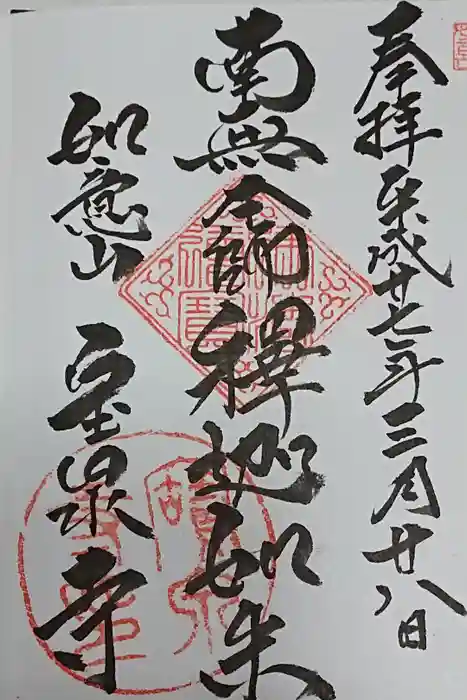 奉拝 平成廿七年三月廿八日
南無本師釋迦如来
如意山 宝泉寺